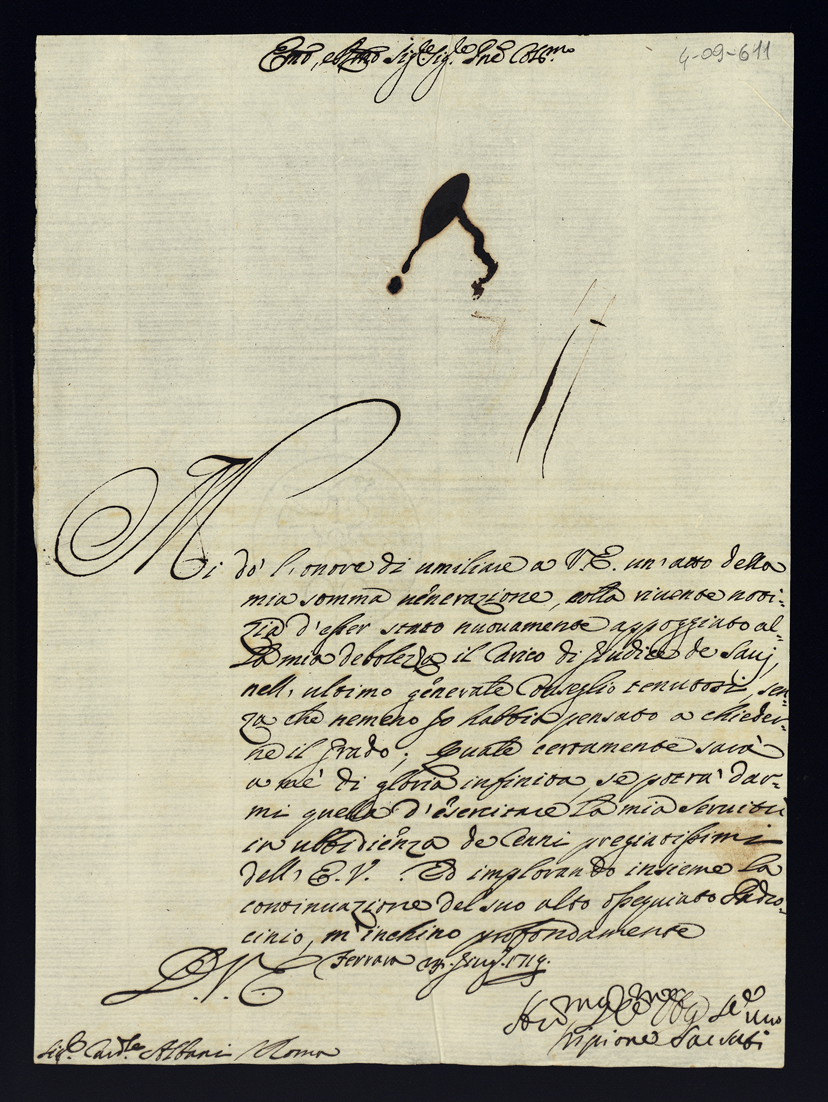 4-09-611
Emo, e Rmo Sig.re Sig.re Pne Col.mo
Mi dò l'onore di umiliare a V.E. un'atto della
mia somma uenerazione, colla riuente noti=
zia d'esser stato nuouamente appoggiato al=
la mia debolezza il Carico di Giudice de Sauj,
nell'ultimo generale Conseglio tenutosi, sen=
za che nemeno Jo habbia pensato a chieder=
ne il grado; Quale certamente sarà
a mè di gloria infinita, se potrà dar=
mi quella d'esercitare la mia Seruitù
in ubbidienza de Cenni pregiatissimi
dell'E.V. Ed implorando insieme la
continuazione del suo alto ossequiato Padro=
cinio, m'inchino profondamente
D.V.E. Ferrara 1719.
Scipione Sacrati
Sig.r Card.le Albani Roma